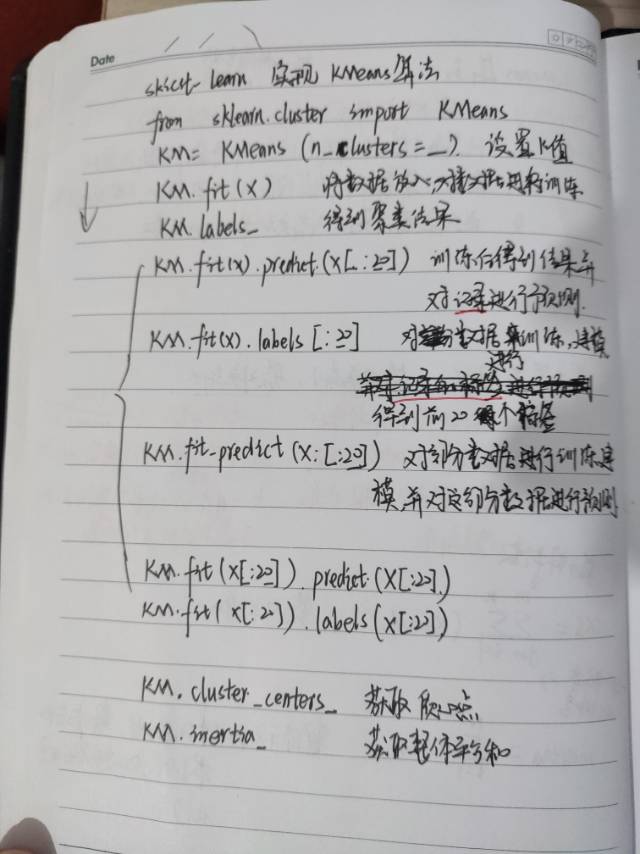 Date
skscit-learn 实现 KMeans算法
from sklearn.cluster import KMeans
KM= KMeans (n_clusters=_) 设置K值
KM.fit(X) 将数据放入,对数据进行训练
KM.labels_ 得到聚类结果
KM.fit(x).predict.(X[:20]) 训练后得到结果并
对记录进行预测.
KM.fit(x).labels[:20] 对数据训练,建模
进行
得到前20个标签
KM.fit-predict(X:[:20]) 对部分数据进行训练建
模并对这部分数据进行预测
KM.fit(X[:20]).predict.(X[:20].)
KM.fit(X[:20]).labels(X[:20])
KM.cluster_centers_ 获取质心点
KM.inertia_ 获取整体平方和